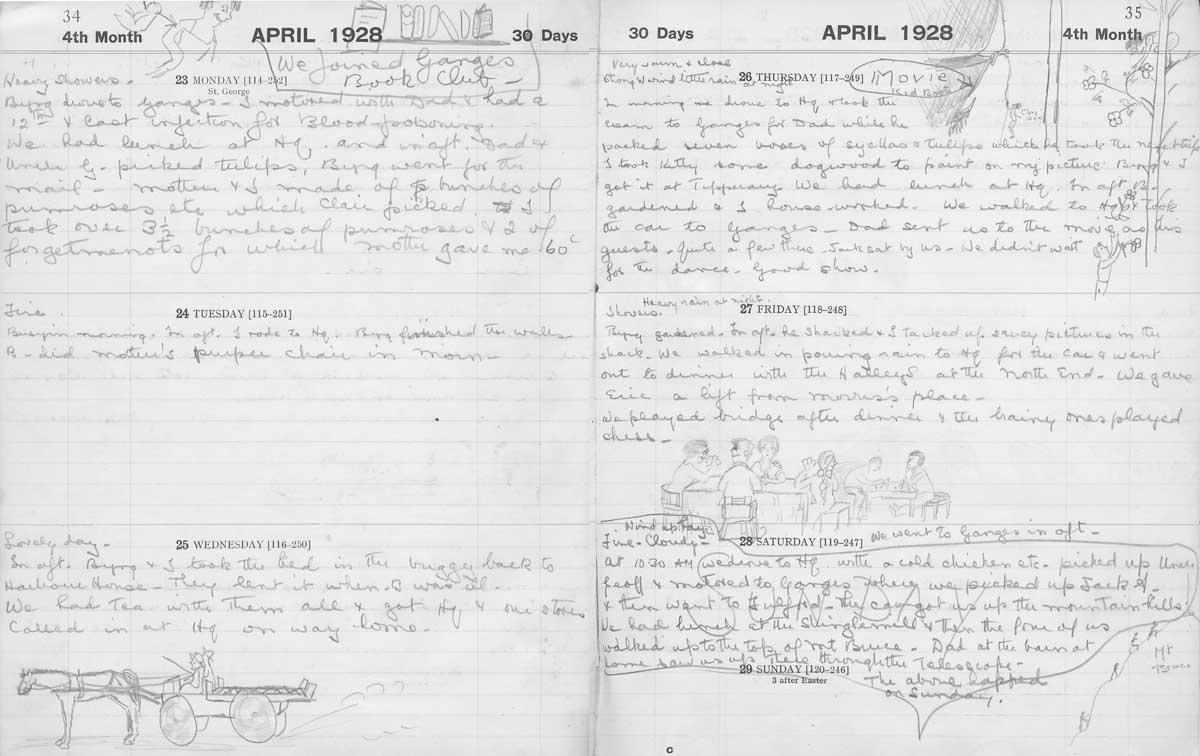 34
4th Month
APRIL 1928
30 Days
We Joined Ganges
Book Club -
Heavy Showers -
23 MONDAY [114-252]
St. George
Byrg drove to Ganges - I motored with Dad & had a
12th & last injection for Blood poisoning.
We had lunch at Hq. and in aft. Dad &
Uncle G. picked tulips, Byrg went for the
mail - mother & I made up bunches of
primroses etc which Clair picked. I
took over 3½ bunches of primroses & 2 of
forgetmenots for which mother gave me 60c
Fine
24 TUESDAY [115-251]
Busy in morning. In aft. I rode to Hq. Byrg finished the walls -
B - did mother's chair in morn -
Lovely day -
25 WEDNESDAY [116-250]
In aft. Byrg & I took the bed in the buggy back to
Harbour House - They lent it when B was ill.
We had Tea with them all & got Hq & our stores
Called in at Hq on way home -
30 Days
APRIL 1928
35
4th Month
Very warm & close
Strong wind little rain at night
26 THURSDAY [117-249]
Movie
In morning we drove to Hq & took the
cream to Ganges for Dad while he
packed seven boxes of & tulips which he took the
I took Kitty some dogwood to paint on my picture. Byrg & I
got it at Tipperary. We had lunch at Hq. In aft B -
gardened & I house-worked. We walked to Hq & took
the car to Ganges - Dad sent us to the movie as his
guests. Quite a few there. Jack sat by us - We didn't wait
for the dance - Good show.
Showers. Heavy rain at night.
27 FRIDAY [118-248]
Byrg gardened. In aft. he shacked & I tacked up saucy pictures in the
shack. We walked in pouring rain to Hq for the car & went
out to dinner with the Halleys at the North End - We gave
Eric a lift from Morris's place -
We played bridge after dinner & the brainy ones played
chess -
Wind up
Fine - Cloudy -
28 SATURDAY [119-247]
We went to Ganges in aft -
At 10 30 AM we drove to Hq. with a cold chicken etc - picked up Uncle
Geoff & motored to Ganges where we picked up Jack A -
& then went to Fulford - The car got us up the mountain hills.
We had lunch at the Shinglemill & then the four of us
walked up to the top of Mt Bruce - Dad at the barn at
home saw us up there through the Telescope -
Mt
Bruce
29 SUNDAY [120-246]
3 after Easter
The above happed
on Sunday.
C